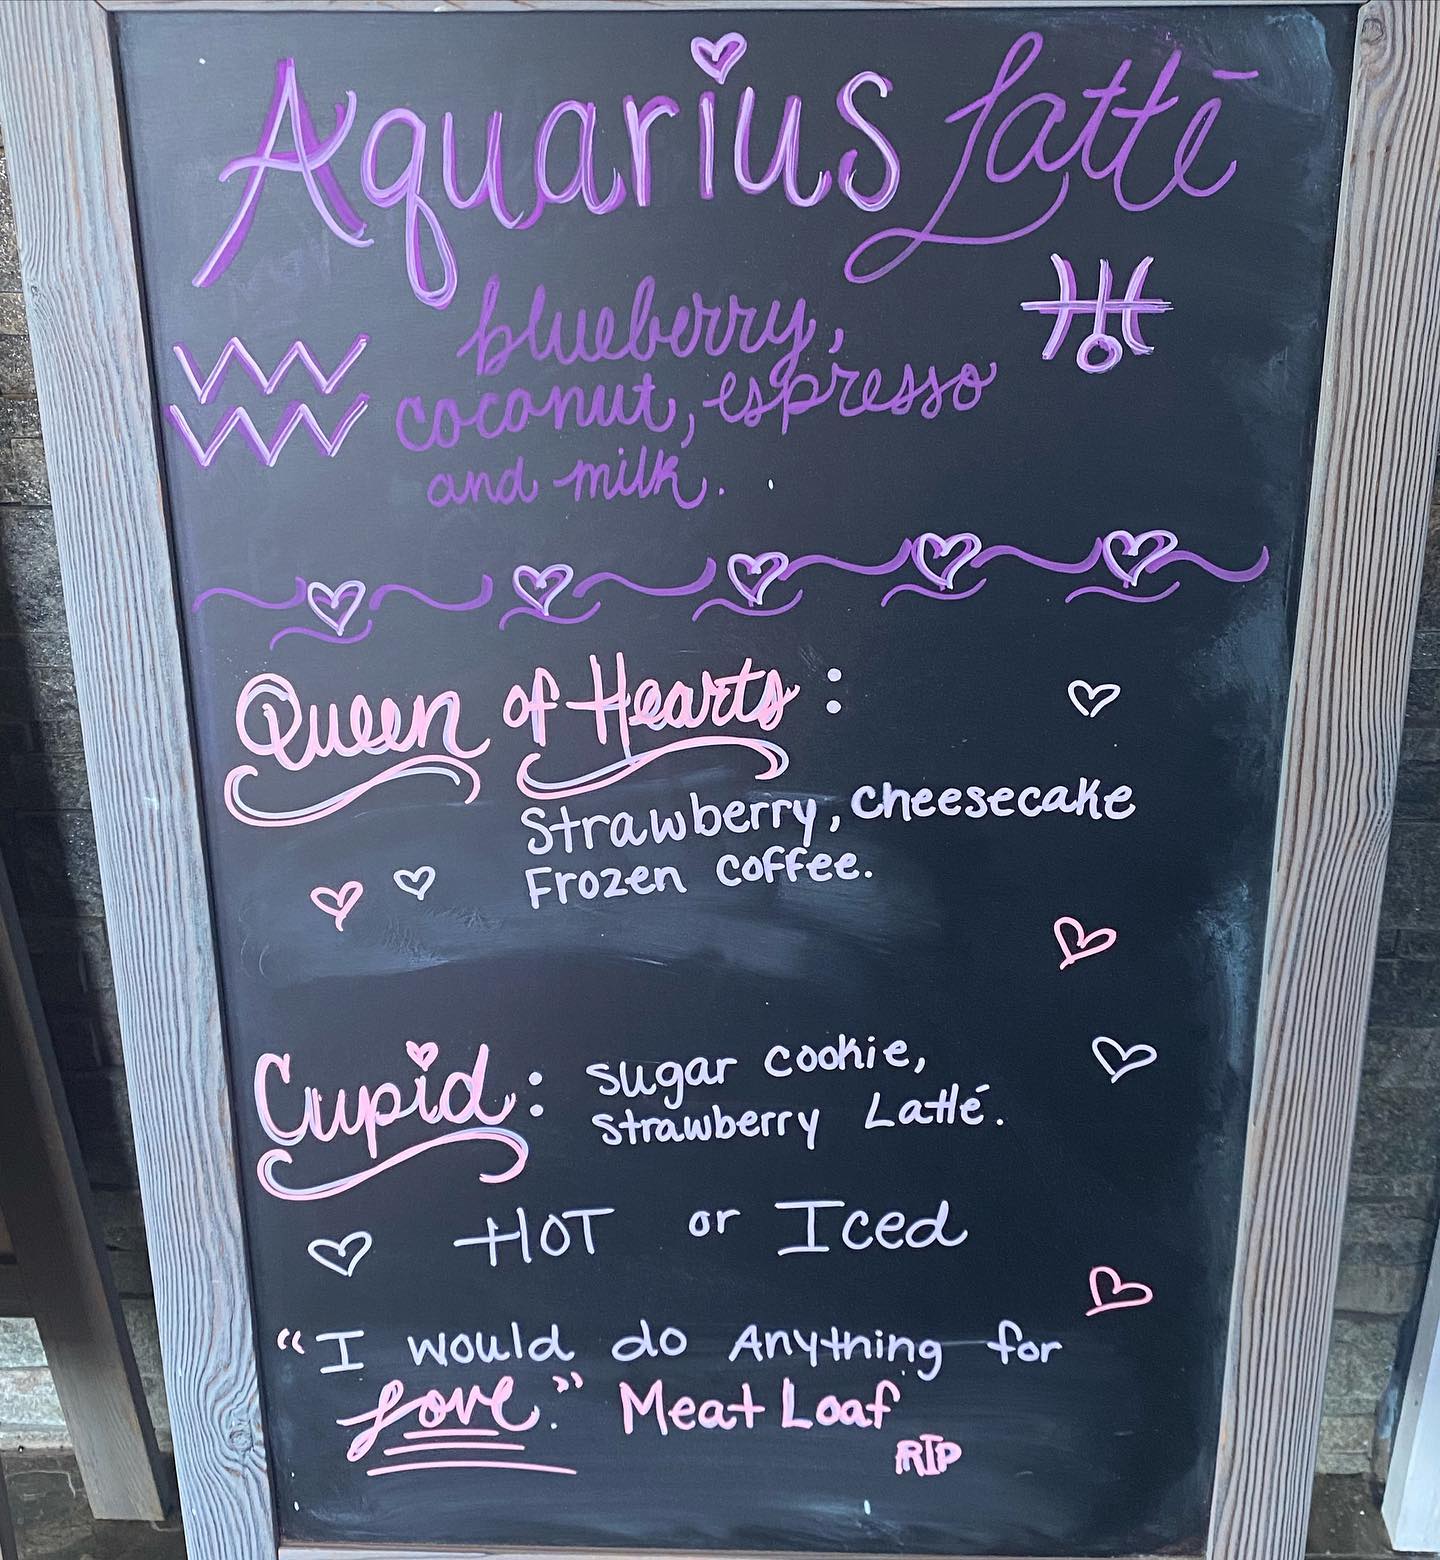 Aquarius Lattē
blueberry,
coconut, espresso
and milk.
Queen of Hearts:
Strawberry, cheesecake
Frozen coffee.
Cupid: sugar cookie,
strawberry Latté.
HOT or Iced
"I would do Anything for
Love." Meat Loaf
RIP